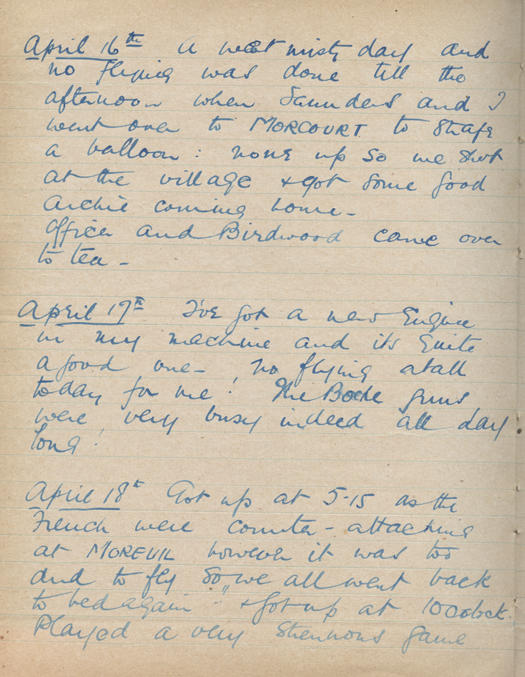 April 16th A wet misty day and
no flying was done till the
afternoon when Saunders and I
went over to MORCOURT to strafe
a balloon: none up so we shot
at the village & got some good
Archie coming home -
Officer and Birdwood came over
to tea -
April 17th I've got a new Engine
in my machine and its quite
a good one - no flying atall
today for me! The Boche guns
were very busy indeed all day
long!
April 18th Got up at 5-15 as the
French were counter-attacking
at MOREUIL however it was too
dud to fly so we all went back
to bed again & got up at 10 oclock.
Played a very strenuous game